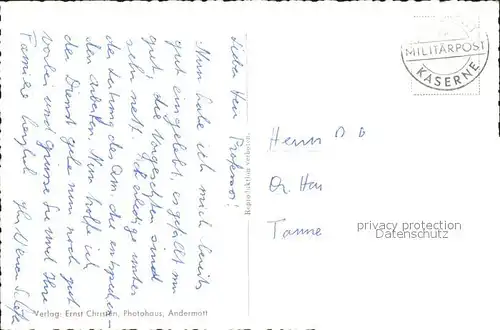 Lieber Herr Professor!
Nun habe ich mich bereits
gut eingelebt, es gefällt mir
gut, die Vorgesetzten sind
sehr nett. Ich
der Leitung des
den arbeiten. Nun hoffe ich,
der Dienst gehe nun noch gut
vorbei und grüsse Sie und Ihre
Familie herzlich Ihr Werner
Verlag: Ernst Christen, Photohaus, Andermatt
Reproduktion verboten.
MILITÄRPOST
KASERNE
Herrn
Dr. Han
Tanne
privacy protection
Datenschutz